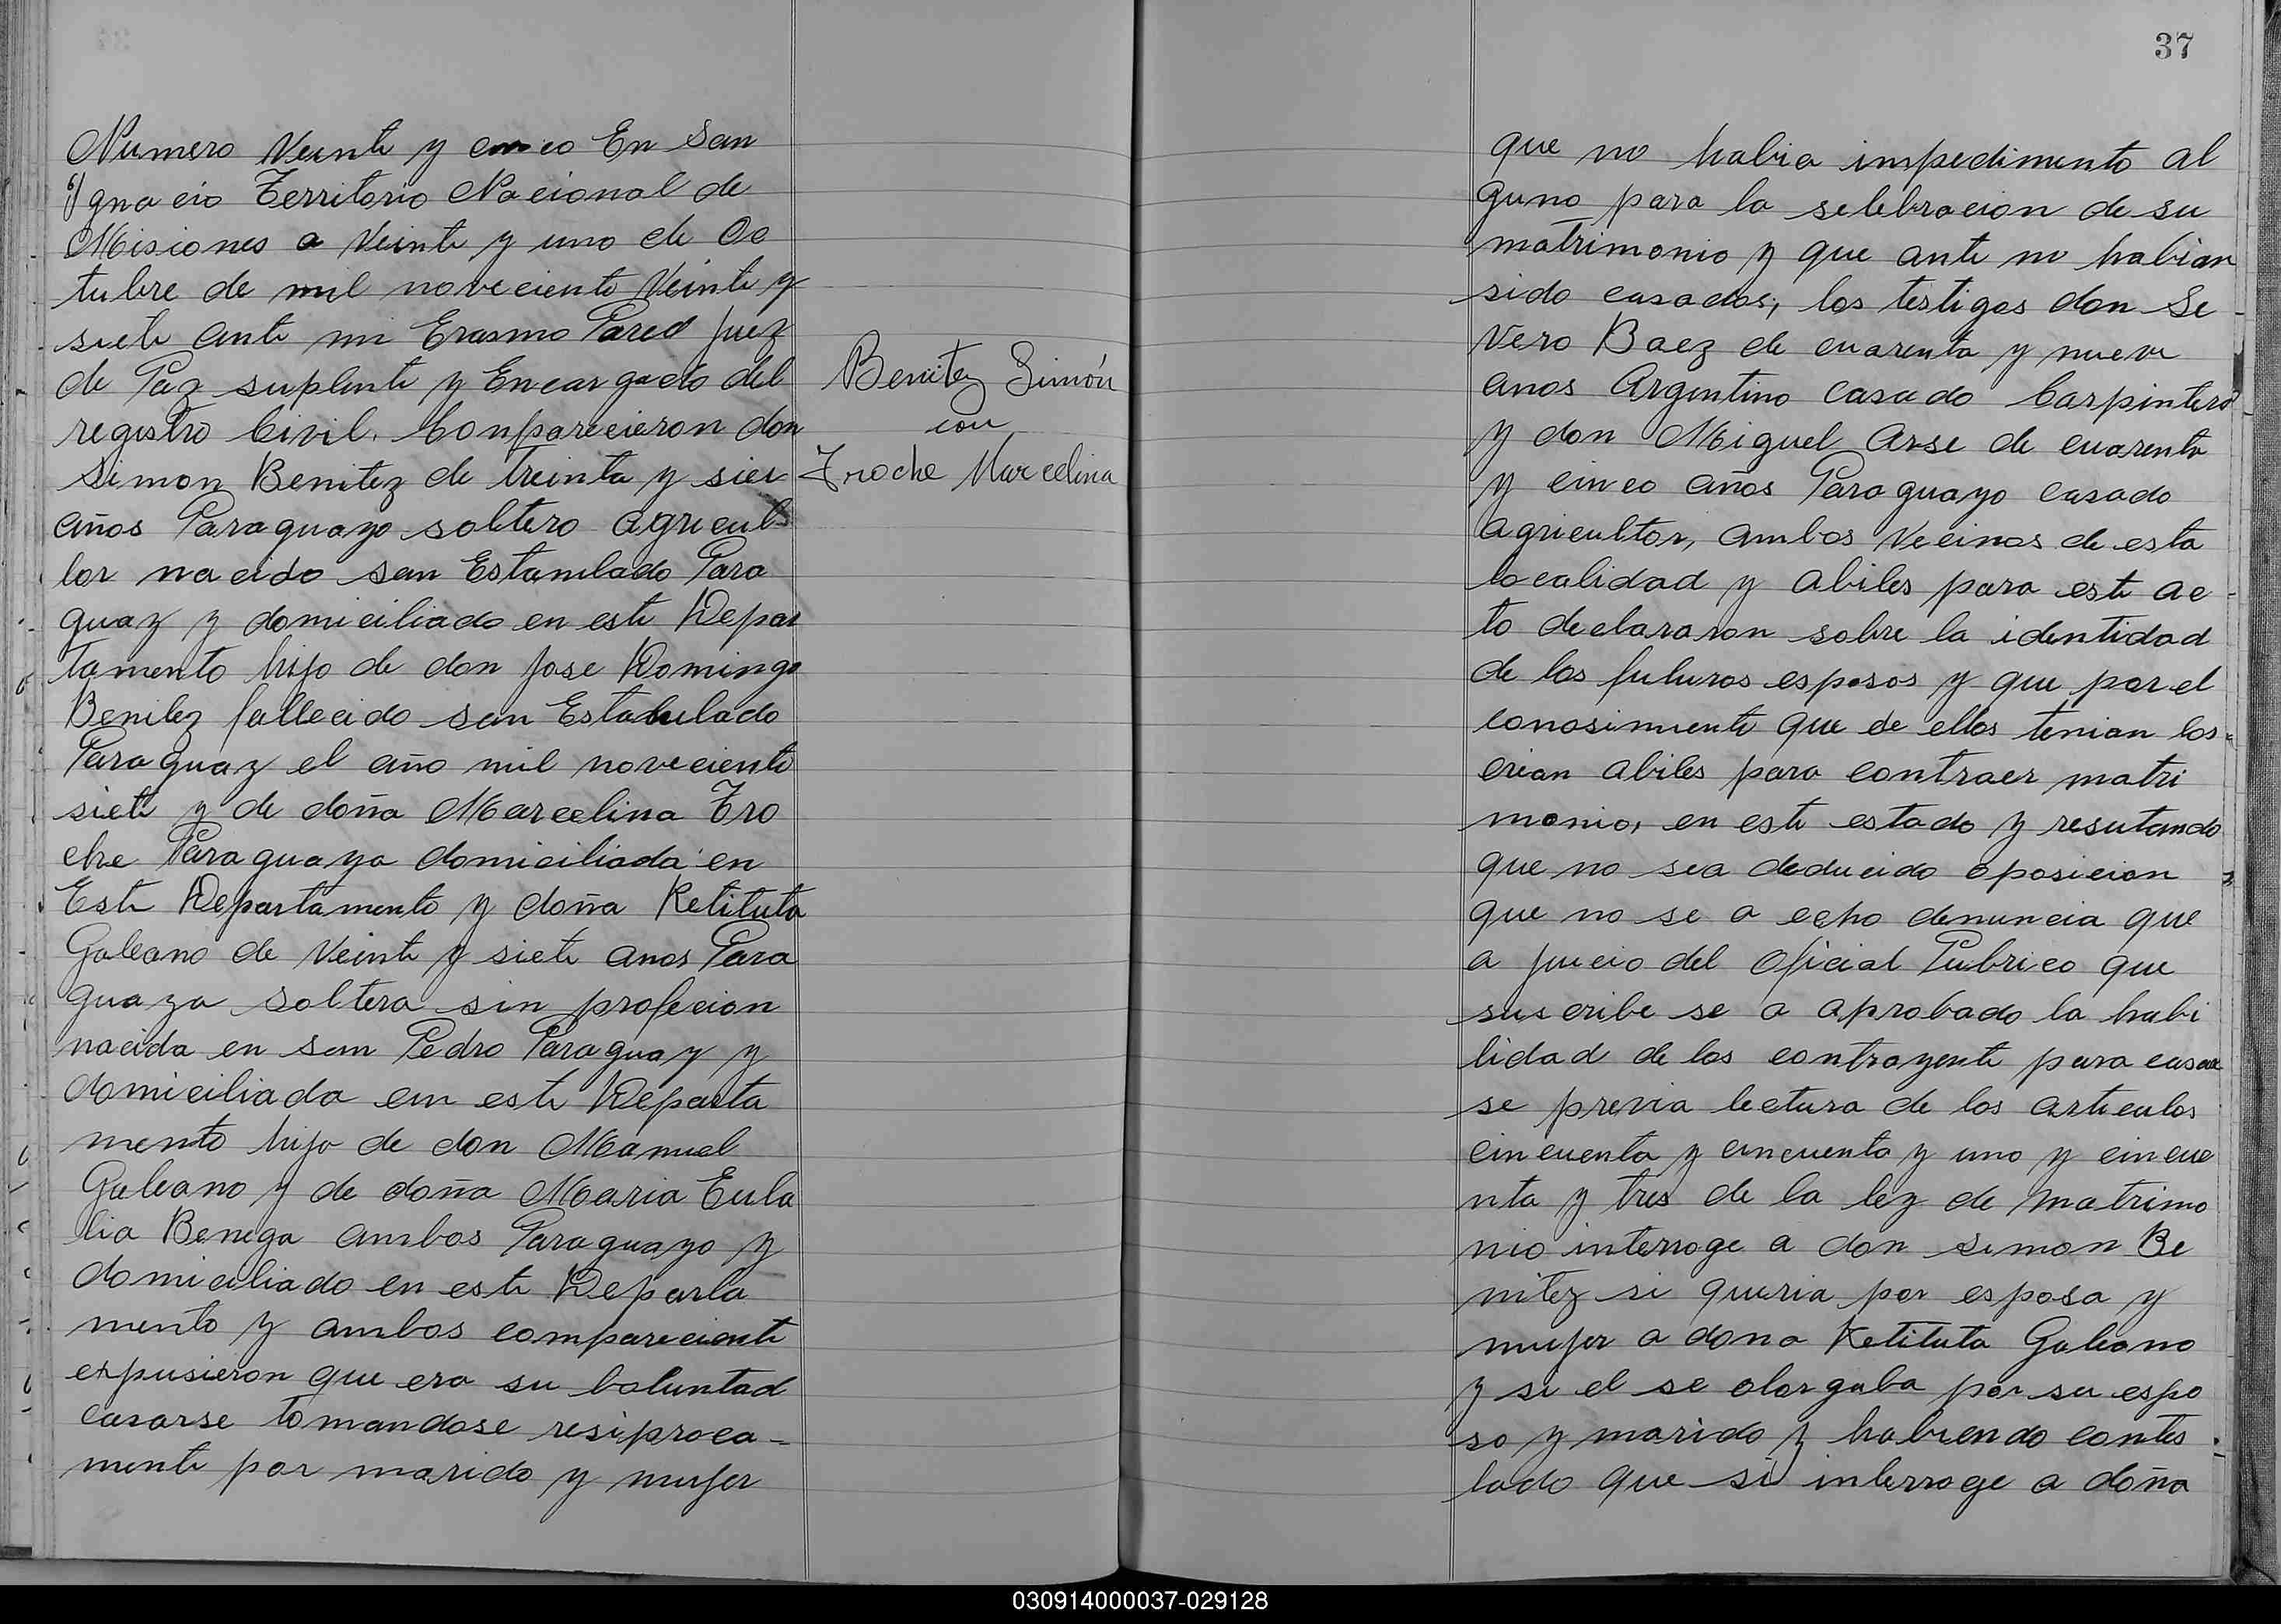 Numero Veinte y cinco En San
Ygnacio Territorio Nacional de
Misiones a Veinte y uno de Oc
tubre de mil noveciento Veinte y
siete ante mi Erasmo Pared Juez
de Paz suplente y Encargado del
registro Civil. Comparecieron don
Simon Benitez de treinta y sies
años Paraguayo soltero agricul
tor nacido san Estanilado Para
guay y domiciliado en este Depar
tamento hijo de don Jose Domingo
Benitez fallecido san Estanilado
Paraguay el año mil noveciento
siete y de doña Marcelina Tro
che Paraguaya domiciliada en
Este Departamento y doña Retituta
Galeano de Veinte y siete anos Para
guaya soltera sin profecion
nacida en san Pedro Paraguay y
domiciliada em este Departa
mento hijo de don Manuel
Galeano y de doña Maria Eula
lia Benega ambos Paraguayo y
domiciliado en este Departa
mento y ambos compareciente
expusieron que era su boluntad
casarse tomandose resiproca-
mente por marido y mujer
Benitez Simón
con
Troche Marcelina
37
que no habia impedimento al
guno para la selebracion de su
matrimonio y que ante no habian
sido casados; los testigos don Se
vero Baez de cuarenta y nueve
anos Argentino casado Carpintero
y don Miguel Arse de cuarenta
y cinco años Paraguayo casado
agricultor, ambos vecinos de esta
localidad y abiles para este ac-
to declararon sobre la identidad
de los futuros esposos y que por el
conosimiente que de ellos tenian los
crian abiles para contraer matri
monio, en este estado y resutando
que no sea deducido oposicion y
que no se a echo denuncia que
a juicio del Oficial Pubrico que
suscribe se a aprobado la habi
lidad de los contrayente para casar
se previa lectura de los articulos
cincuenta y cincuenta y uno y cincue
nta y tres de la ley de matrimo
nio interroge a don Simon Be
nitez si queria por esposa y
mujer a dona Retituta Galeano
y si el se otorgaba por su espo
so y marido y habiendo contes
tado que si interroge a doña
030914000037-029128